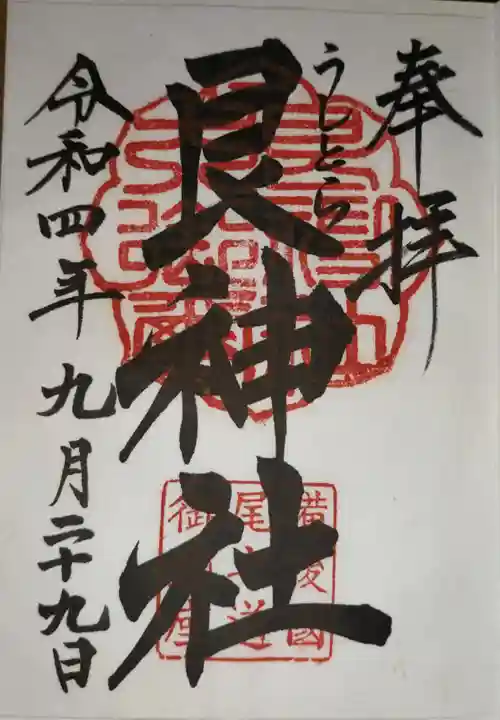 奉拝
うしとら
艮神社
令和四年九月二十九日
備後國
尾之道